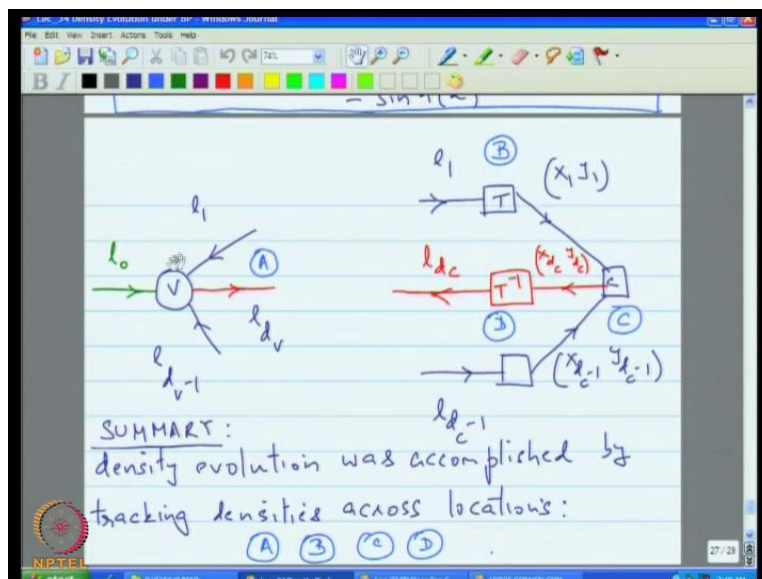 Lec_34 Density Evolution under BP - Windows Journal
File Edit View Insert Actions Tools Help
74%
B I
l_1 B (x_1 y_1)
T
l_1
l_0 A l_{d_c} (x_{d_c} y_{d_c})
V T^{-1} c
l_{d_v} D C
l_{d_v-1} (x_{d_c-1} y_{d_c-1})
l_{d_c-1}
SUMMARY:
density evolution was accomplished by
tracking densities across location's:
A B C D
NPTEL
27/29